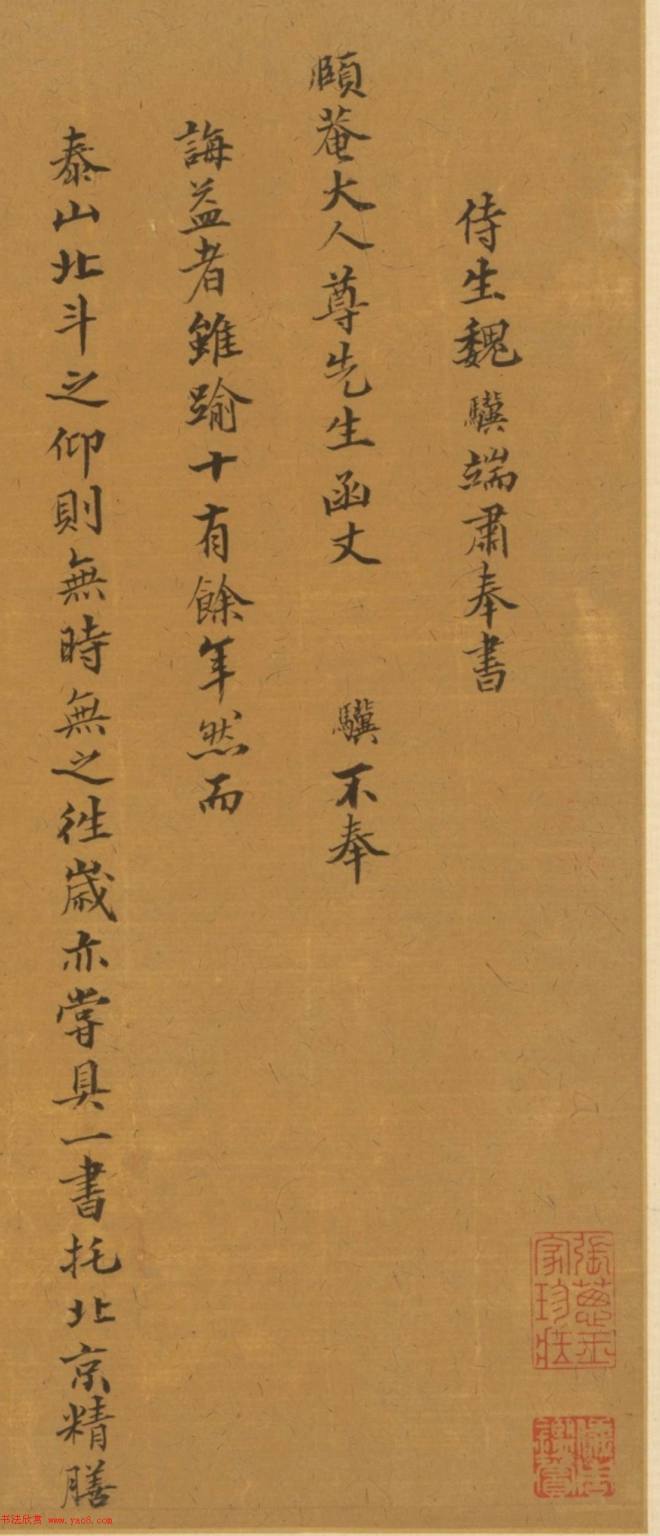 侍生魏驥端肅奉書
頤菴大人尊先生函丈 驥不奉
誨益者雖踰十有餘年然而
泰山北斗之仰則無時無之徃歲亦嘗具一書托北京精膳
張蔥玉
家珍藏
书法欣赏 www.yac8.com